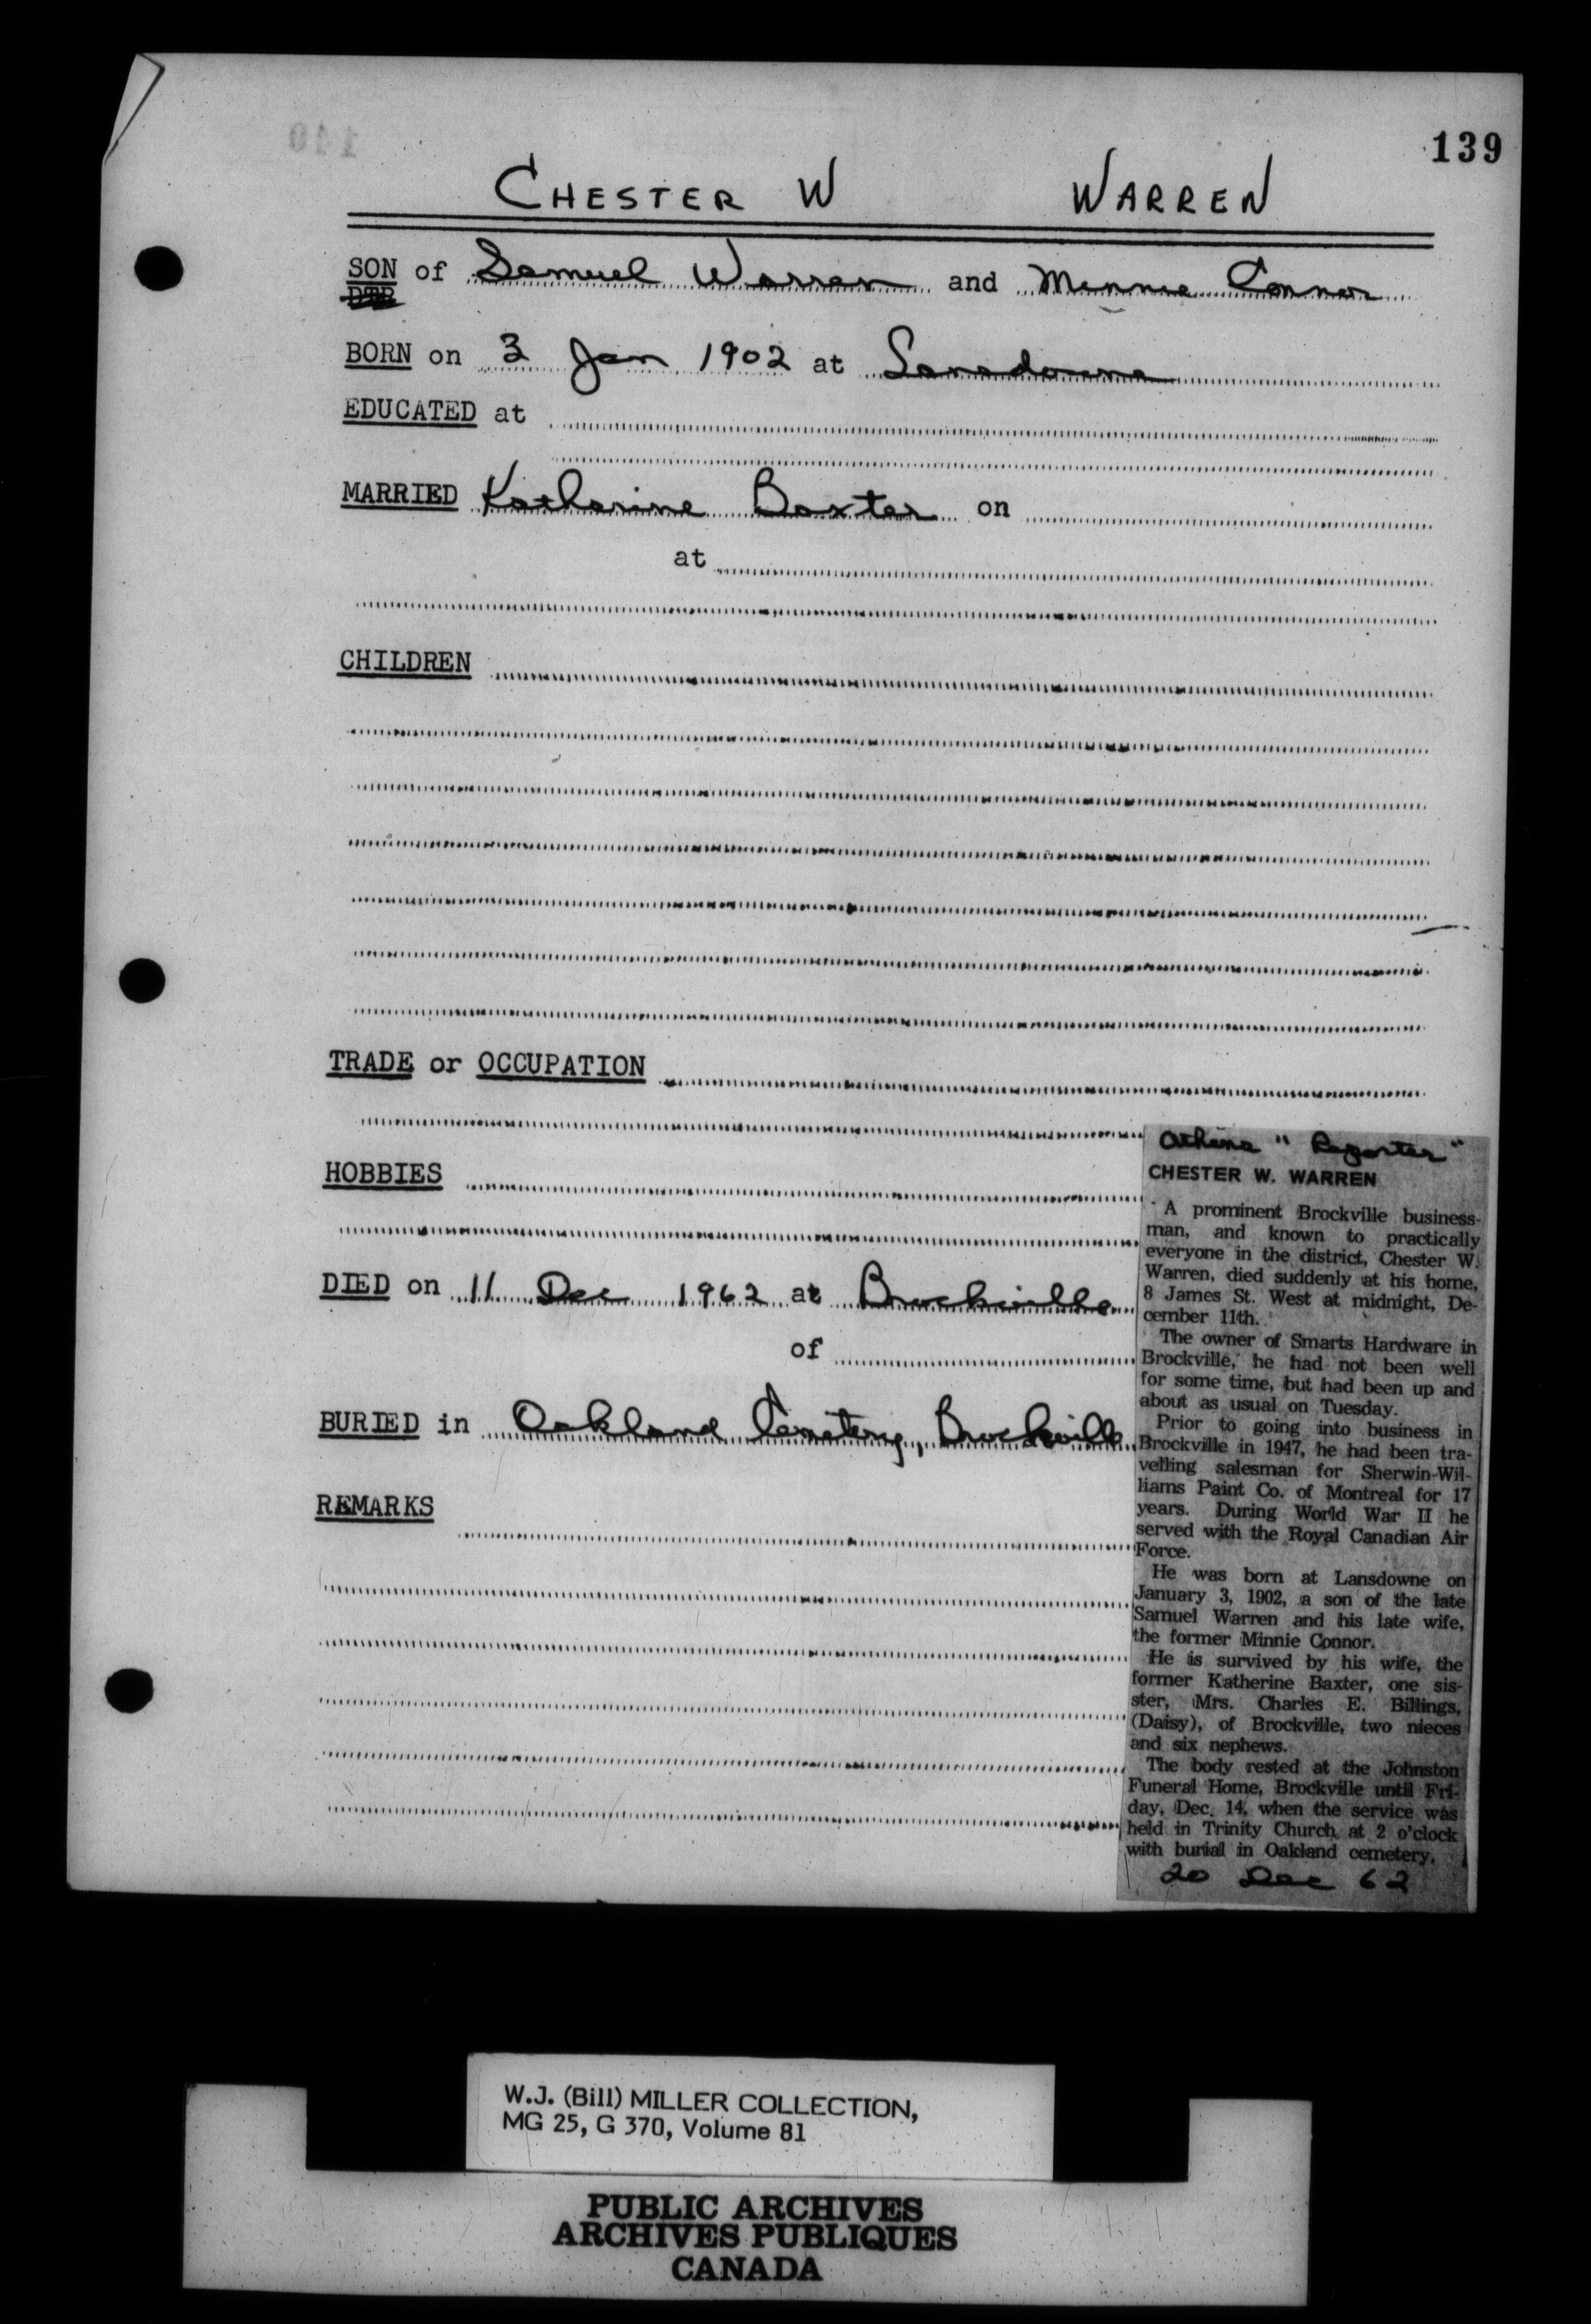 139
CHESTER W WARREN
SON of Samuel Warren and Minnie Connor
DTR
BORN on 3 Jan 1902 at Lansdowne
EDUCATED at
MARRIED Katharine Baxter on
at
CHILDREN
TRADE or OCCUPATION
HOBBIES
DIED on 11 Dec 1962 at Brockville
of
BURIED in Oakland Cemetery, Brockville
REMARKS
Athens "Reporter"
CHESTER W. WARREN
A prominent Brockville business-
man, and known to practically
everyone in the district, Chester W.
Warren, died suddenly at his home,
8 James St. West at midnight, De-
cember 11th.
The owner of Smarts Hardware in
Brockville, he had not been well
for some time, but had been up and
about as usual on Tuesday.
Prior to going into business in
Brockville in 1947, he had been tra-
velling salesman for Sherwin-Wil-
liams Paint Co. of Montreal for 17
years. During World War II he
served with the Royal Canadian Air
Force.
He was born at Lansdowne on
January 3, 1902, a son of the late
Samuel Warren and his late wife,
the former Minnie Connor.
He is survived by his wife, the
former Katherine Baxter, one sis-
ster, Mrs. Charles E. Billings,
(Daisy), of Brockville, two nieces
and six nephews.
The body rested at the Johnston
Funeral Home, Brockville until Fri-
day, Dec. 14, when the service was
held in Trinity Church at 2 o'clock
with burial in Oakland cemetery.
20 Dec 62
W.J. (Bill) MILLER COLLECTION,
MG 25, G 370, Volume 81
PUBLIC ARCHIVES
ARCHIVES PUBLIQUES
CANADA